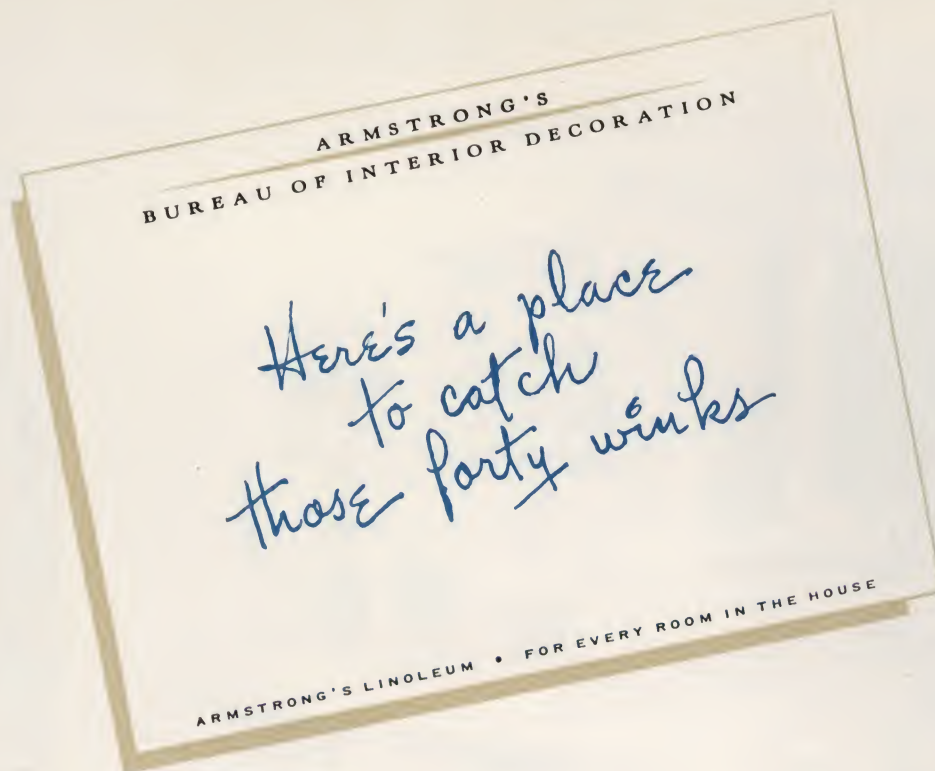 ARMSTRONG'S
BUREAU OF INTERIOR DECORATION
Here's a place
to catch
those forty winks
ARMSTRONG'S LINOLEUM • FOR EVERY ROOM IN THE HOUSE